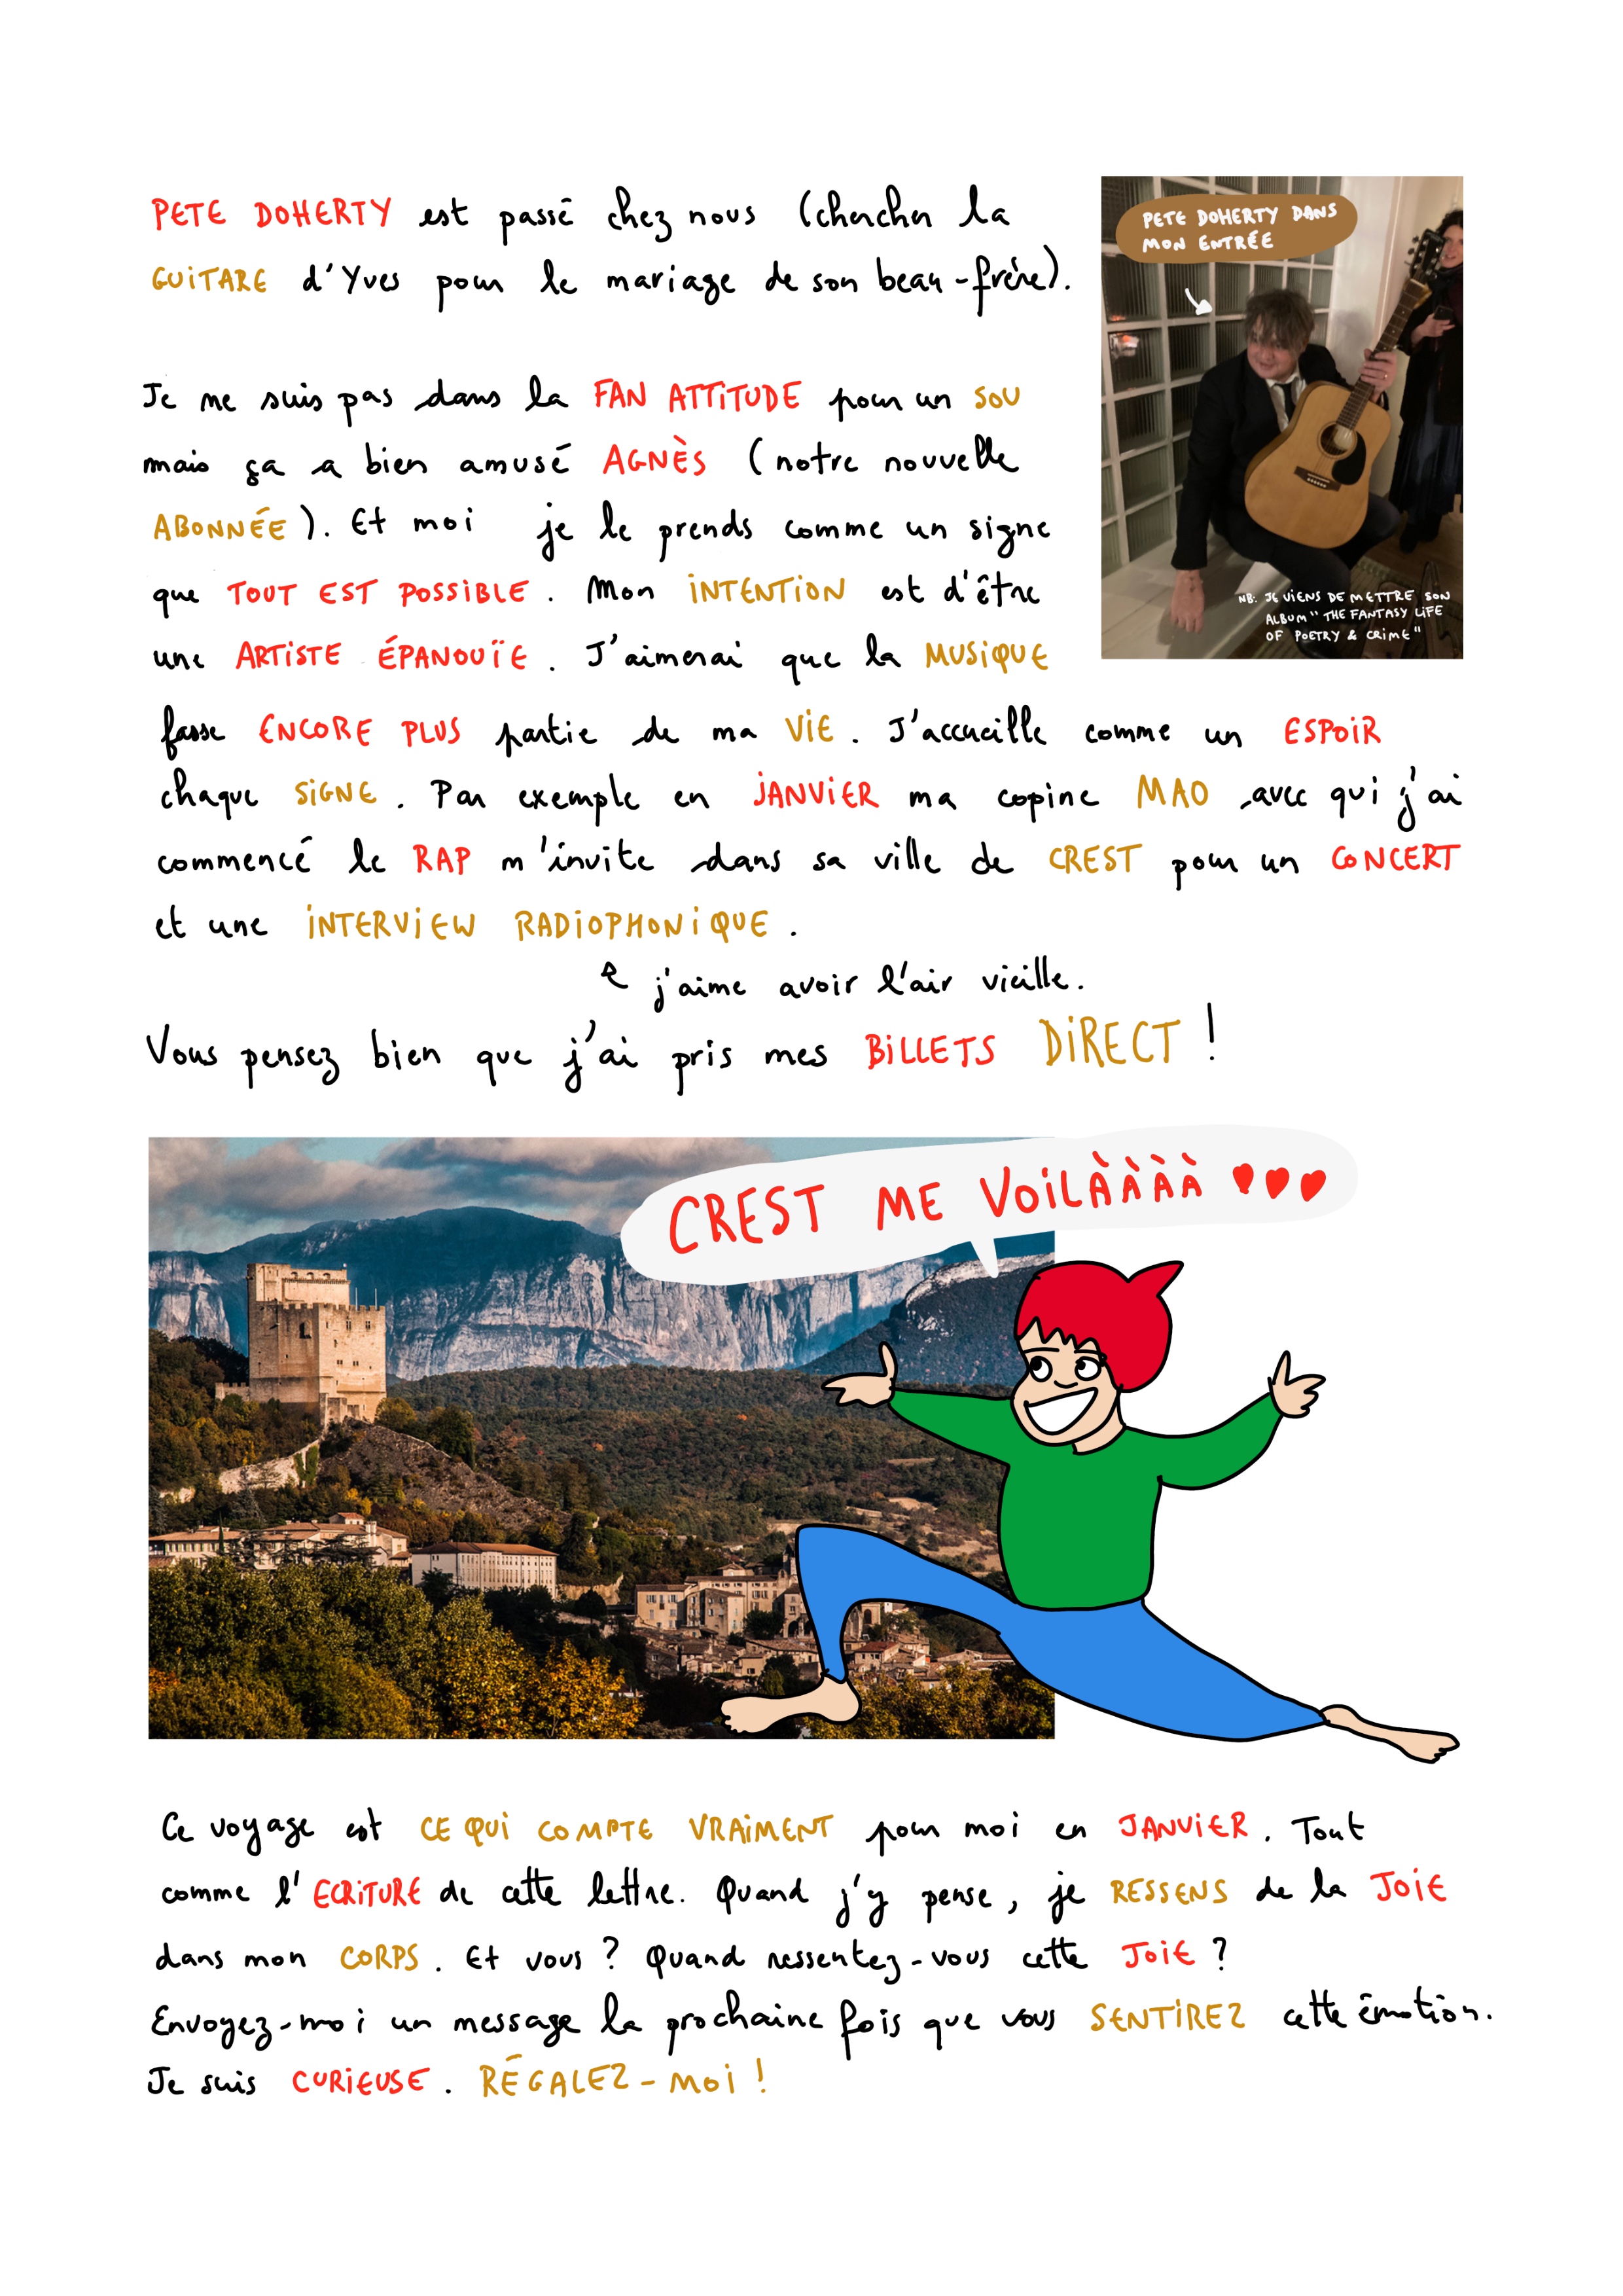 PETE DOHERTY est passé chez nous (chercher la
GUITARE d'Yves pour le mariage de son beau-frère).
PETE DOHERTY DANS
MON ENTRÉE
NB: JE VIENS DE METTRE SON
ALBUM "THE FANTASY LIFE
OF POETRY & CRIME"
Je ne suis pas dans la FAN ATTITUDE pour un SOU
mais ça a bien amusé AGNÈS (notre nouvelle
ABONNÉE). Et moi je le prends comme un signe
que TOUT EST POSSIBLE. Mon INTENTION est d'être
une ARTISTE ÉPANOUÏE. J'aimerai que la MUSIQUE
fasse ENCORE PLUS partie de ma VIE. J'accueille comme un ESPOIR
chaque SIGNE. Par exemple en JANVIER ma copine MAO avec qui j'ai
commencé le RAP m'invite dans sa ville de CREST pour un CONCERT
et une INTERVIEW RADIOPHONIQUE.
j'aime avoir l'air vieille.
Vous pensez bien que j'ai pris mes BILLETS DIRECT !
CREST ME VOILÀÀÀÀ ♥♥♥
Ce voyage est CE QUI COMPTE VRAIMENT pour moi en JANVIER. Tout
comme l'ECRITURE de cette lettre. Quand j'y pense, je RESSENS de la JOIE
dans mon CORPS. Et vous ? Quand ressentez-vous cette JOIE ?
Envoyez-moi un message la prochaine fois que vous SENTIREZ cette émotion.
Je suis CURIEUSE. RÉGALEZ-MOI !